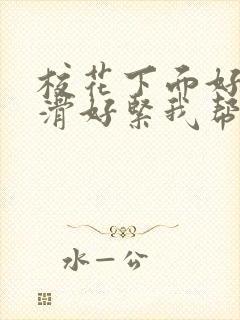 校花下面好
滑好紧我帮
水一公